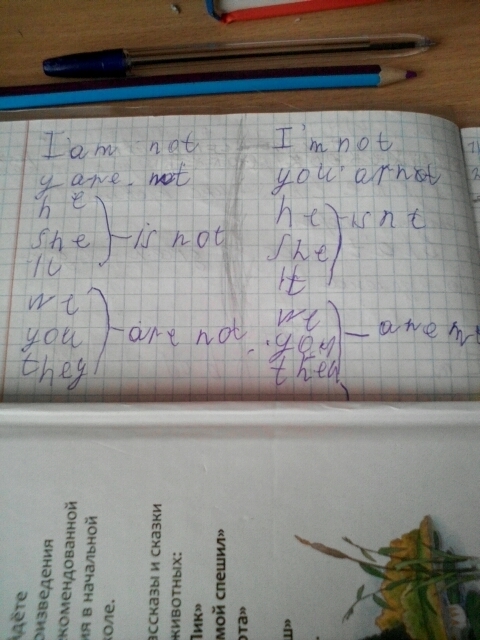 I am not
y are not
he
she } is not
It
we
you } are not
they
I'm not
you arnot
he
she } isnt
It
we
you } are
they
йдёте
оизведения
екомендованной
ия в начальной
коле.
ассказы и сказки
животных:
Пик»
мой спешил»
ота»
ш»